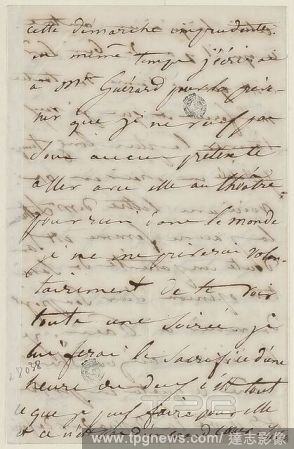 cette démarche imprudente.
en même temps j'écrivis
à Mme Guérard pour la
que je ne veux pas
sous aucun prétexte
aller avec elle au théâtre
pour rien dans le monde
je ne me priverai volon
tairement de te voir
toute une soirée, je
lui ferai le sacrifice d'une
heure ou deux c'est tout
ce que je puis faire pour elle
et ce n'est
28038
www.tpgnews.com / 達志影像